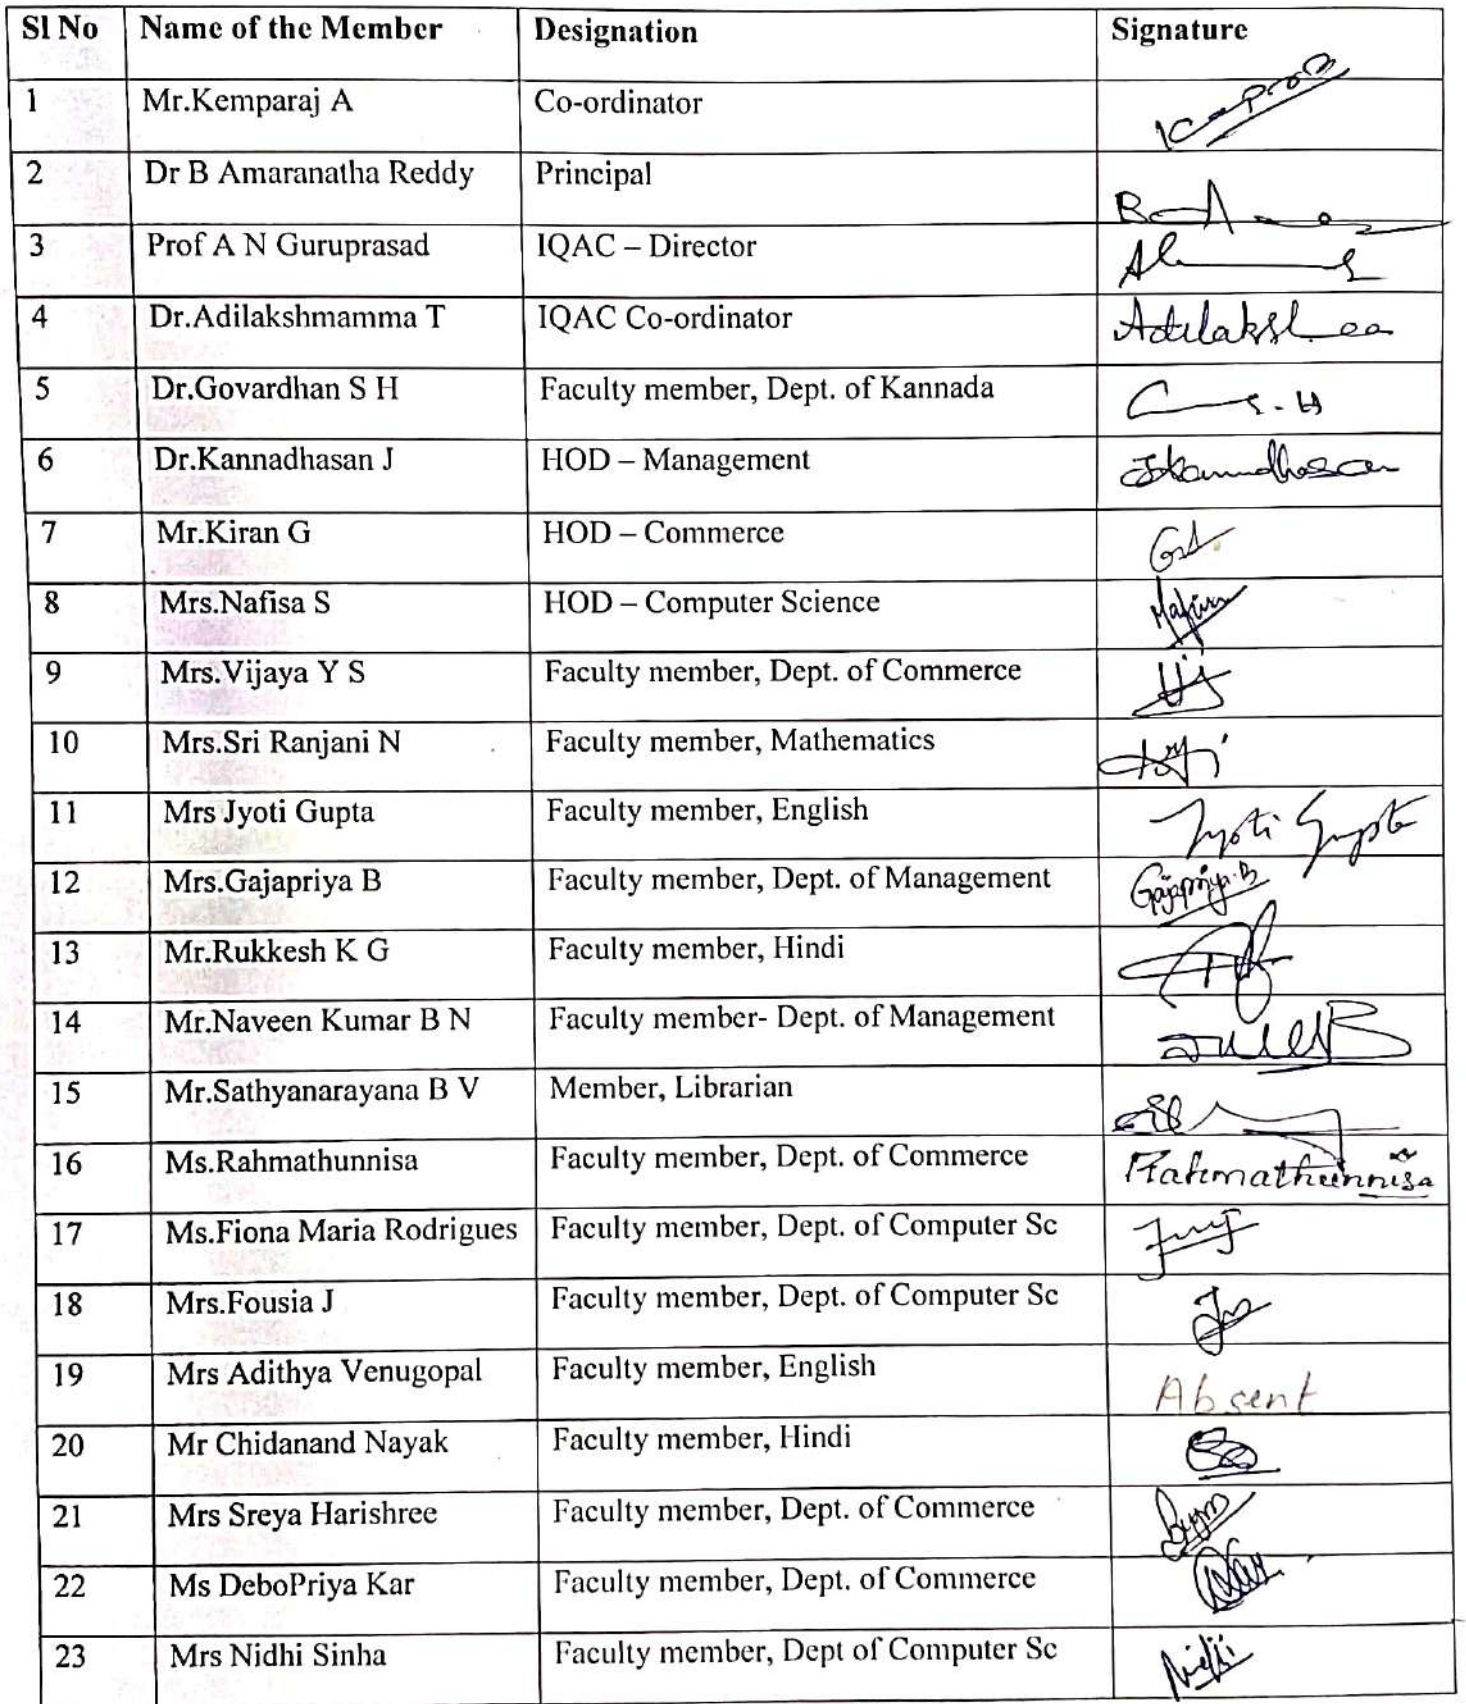 Sl No Name of the Member Designation Signature
1 Mr.Kemparaj A Co-ordinator
2 Dr B Amaranatha Reddy Principal
3 Prof A N Guruprasad IQAC – Director
4 Dr.Adilakshmamma T IQAC Co-ordinator
5 Dr.Govardhan S H Faculty member, Dept. of Kannada
6 Dr.Kannadhasan J HOD – Management
7 Mr.Kiran G HOD – Commerce
8 Mrs.Nafisa S HOD – Computer Science
9 Mrs.Vijaya Y S Faculty member, Dept. of Commerce
10 Mrs.Sri Ranjani N Faculty member, Mathematics
11 Mrs Jyoti Gupta Faculty member, English Jyoti Gupta
12 Mrs.Gajapriya B Faculty member, Dept. of Management Gajapriya.B
13 Mr.Rukkesh K G Faculty member, Hindi
14 Mr.Naveen Kumar B N Faculty member- Dept. of Management
15 Mr.Sathyanarayana B V Member, Librarian
16 Ms.Rahmathunnisa Faculty member, Dept. of Commerce Rahmathunnisa
17 Ms.Fiona Maria Rodrigues Faculty member, Dept. of Computer Sc
18 Mrs.Fousia J Faculty member, Dept. of Computer Sc
19 Mrs Adithya Venugopal Faculty member, English Absent
20 Mr Chidanand Nayak Faculty member, Hindi
21 Mrs Sreya Harishree Faculty member, Dept. of Commerce
22 Ms DeboPriya Kar Faculty member, Dept. of Commerce
23 Mrs Nidhi Sinha Faculty member, Dept of Computer Sc Nidhi